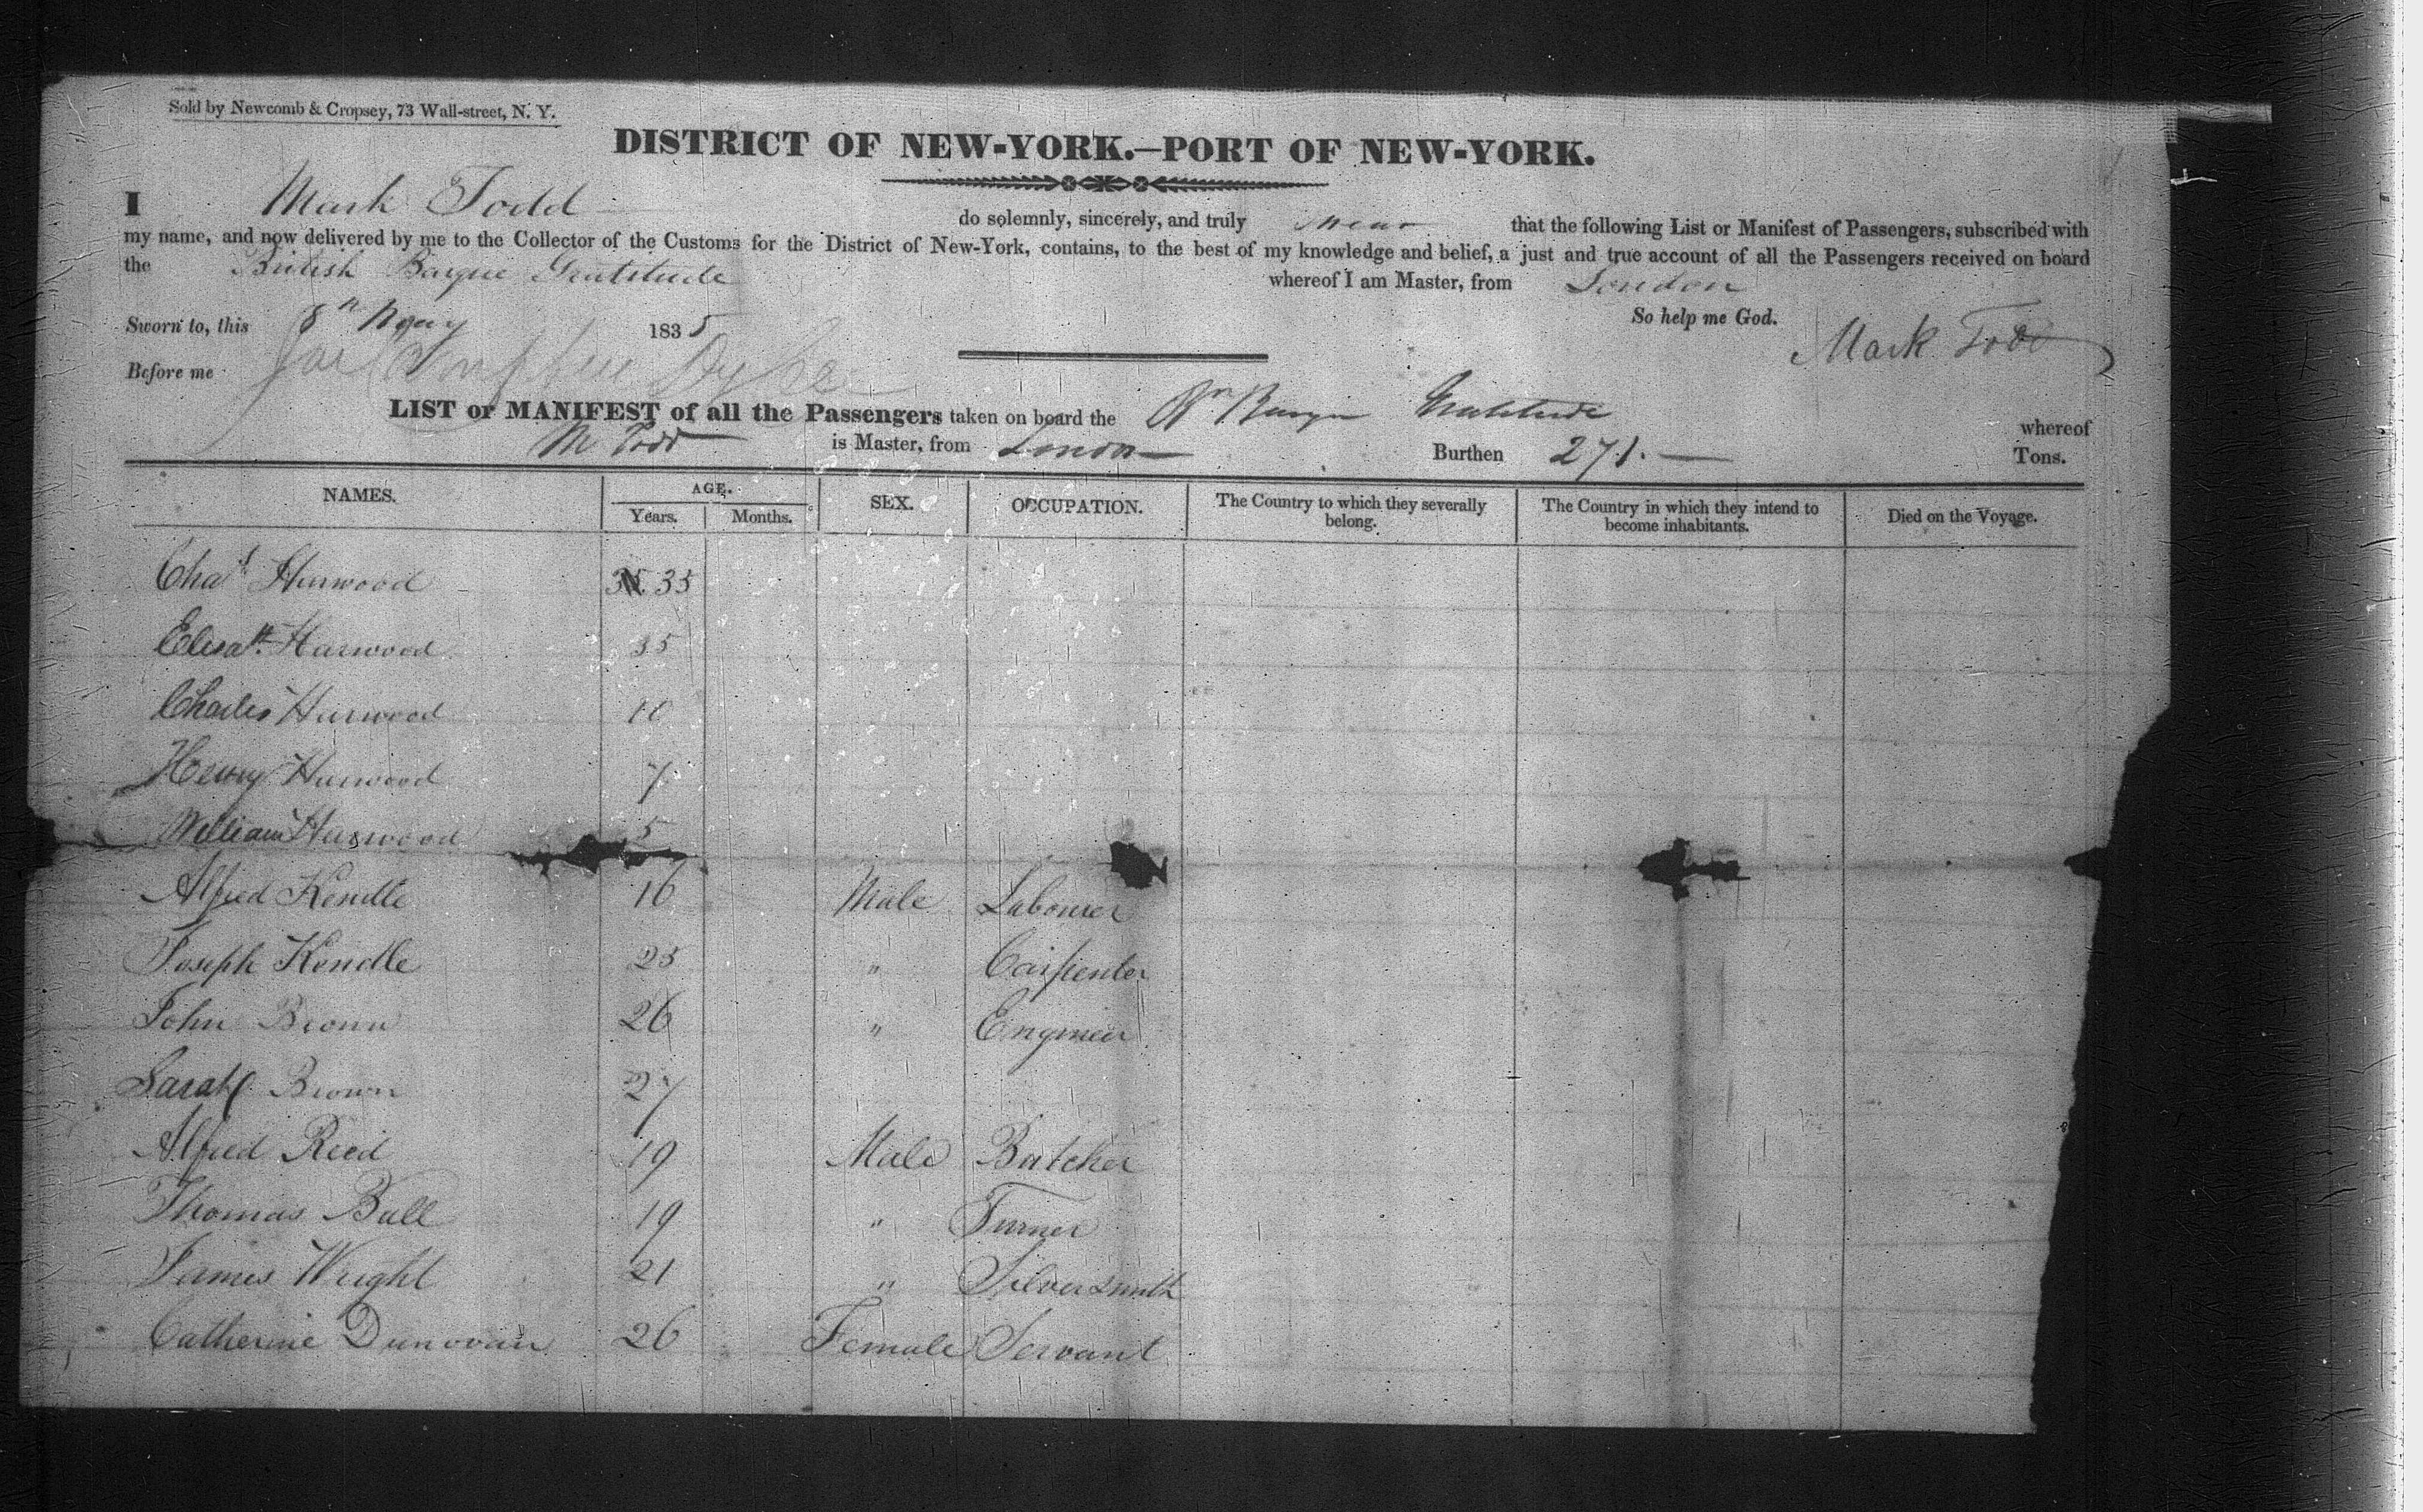 Sold by Newcomb & Cropsey, 73 Wall-street, N. Y.
DISTRICT OF NEW-YORK.—PORT OF NEW-YORK.
I Mark Todd do solemnly, sincerely, and truly swear that the following List or Manifest of Passengers, subscribed with
my name, and now delivered by me to the Collector of the Customs for the District of New-York, contains, to the best of my knowledge and belief, a just and true account of all the Passengers received on board
the British Barque Gratitude whereof I am Master, from London
So help me God.
Sworn to, this 8th May 1835
Mark Todd
Before me
LIST or MANIFEST of all the Passengers taken on board the Br. Barque Gratitude whereof
M Todd is Master, from London Burthen 271. Tons.
NAMES. AGE. SEX. OCCUPATION. The Country to which they severally belong. The Country in which they intend to become inhabitants. Died on the Voyage.
Years. Months.
Chas Harwood 35
Elisath Harwood 35
Charles Harwood 10
Henry Harwood 7
William Harwood 5
Alfred Kendle 16 Male Labourer
Joseph Kendle 25 " Carpenter
John Brown 26 " Engineer
Sarah Brown 27
Alfred Reed 19 Male Butcher
Thomas Ball 19 " Turner
James Wright 21 " Silversmith
Catherine Dunovan 26 Female Servant